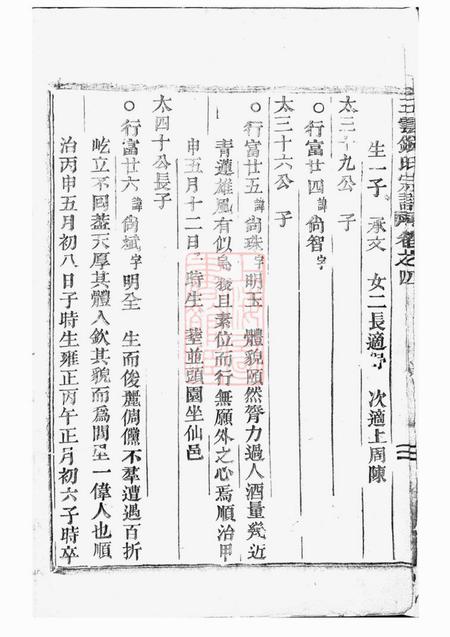 玉雲錢氏宗譜 卷之四
生一子 承文 女二長適 次適上周陳
太三十九公 子
○行富廿四諱尚智字
太三十六公 子
○行富廿五諱尚珠字明玉 體貌頎然膂力過人酒量幾近
青蓮雄風有似烏獲且素位而行無願外之心焉順治甲
申五月十二日 時生 塟並頭園坐仙邑
太四十公長子
○行富廿六諱尚斌字明全 生而俊麗倜儻不羣遭遇百折
屹立不囘葢天厚其體人欽其貌而爲閭里一偉人也順
治丙申五月初八日子時生雍正丙午正月初六子時卒